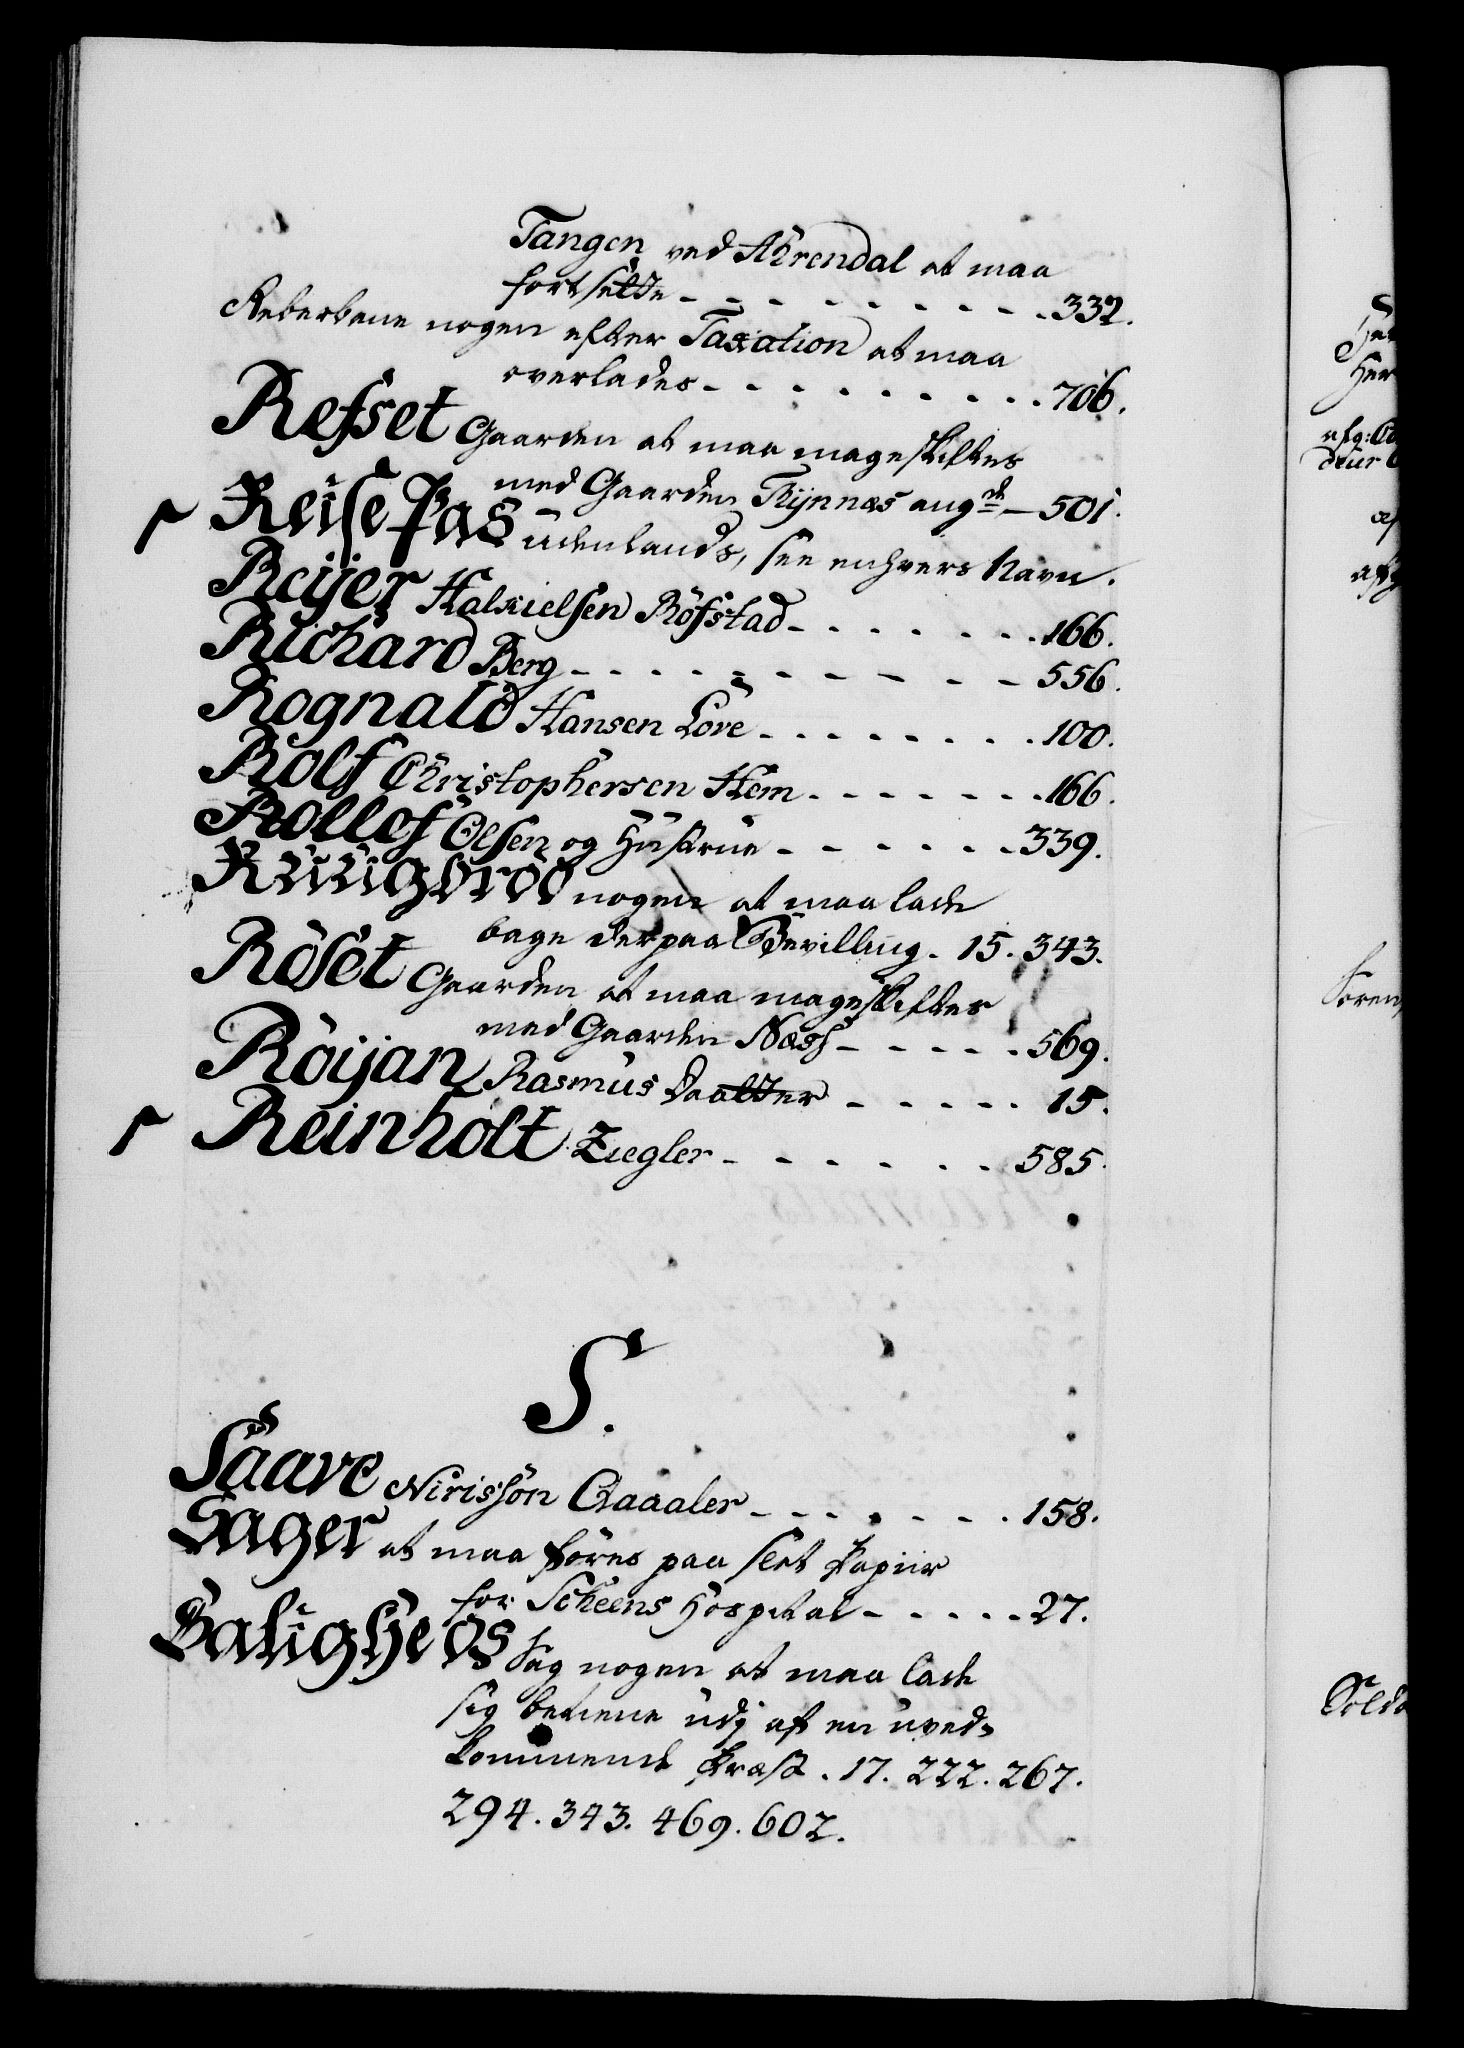 Tangen ved Ahrendal at maa
fortsette - - - - - - - - - 332.
Reberbane nogen efter Taxation at maa
overlades - - - - - - - - - 706.
Refset Gaarden at maa mageskiftes
med Gaarden Rynnæs ang de — 501.
Reise Pas udenlands, see enhvers Navn.
Reijer Halvielsen Röfstad - - - - - - - 166.
Richard Berg - - - - - - - - - - 556.
Rognald Hansen Löre - - - - - - - - 100.
Rolf Christophersen Hem - - - - - - - 166.
Rollef Olsen og Hustrue - - - - - - 339.
Ruugbröd nogen at maa lade
bage derpaa Bevilling. 15. 343.
Röset Gaarden at maa mageskiftes
med Gaarden Næss - - - - - 569.
Röijan Rasmus Daatter - - - - - 15.
Reinholt Ziegler - - - - - - 585.
S.
Saave Nirissön Qvaaler - - - - - - - 158.
Sager at maa föres paa slet Papiir
for Scheens Hospital - - - - - 27.
Saligheds Sag nogen at maa lade
sig betiene udj af en uved=
kommende Præst. 17. 222. 267.
294. 343. 469. 602.
Her
afg:
af
afg
Soren
Solda